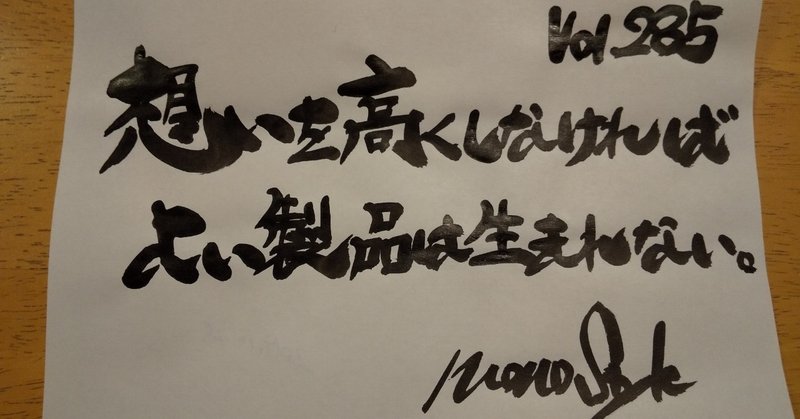 Vol 285
想いを高くしなければ
よい製品は生まれない。
mono Style